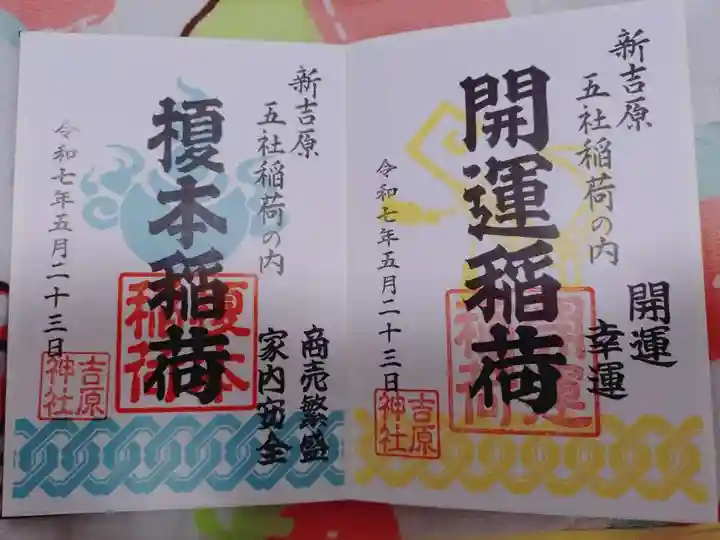 新吉原
五社稲荷の内
開運
幸運
開運稲荷
開運
稲荷
令和七年五月二十三日
吉原
神社
新吉原
五社稲荷の内
商売繁盛
家内安全
榎本稲荷
榎本
稲荷
令和七年五月二十三日
吉原
神社